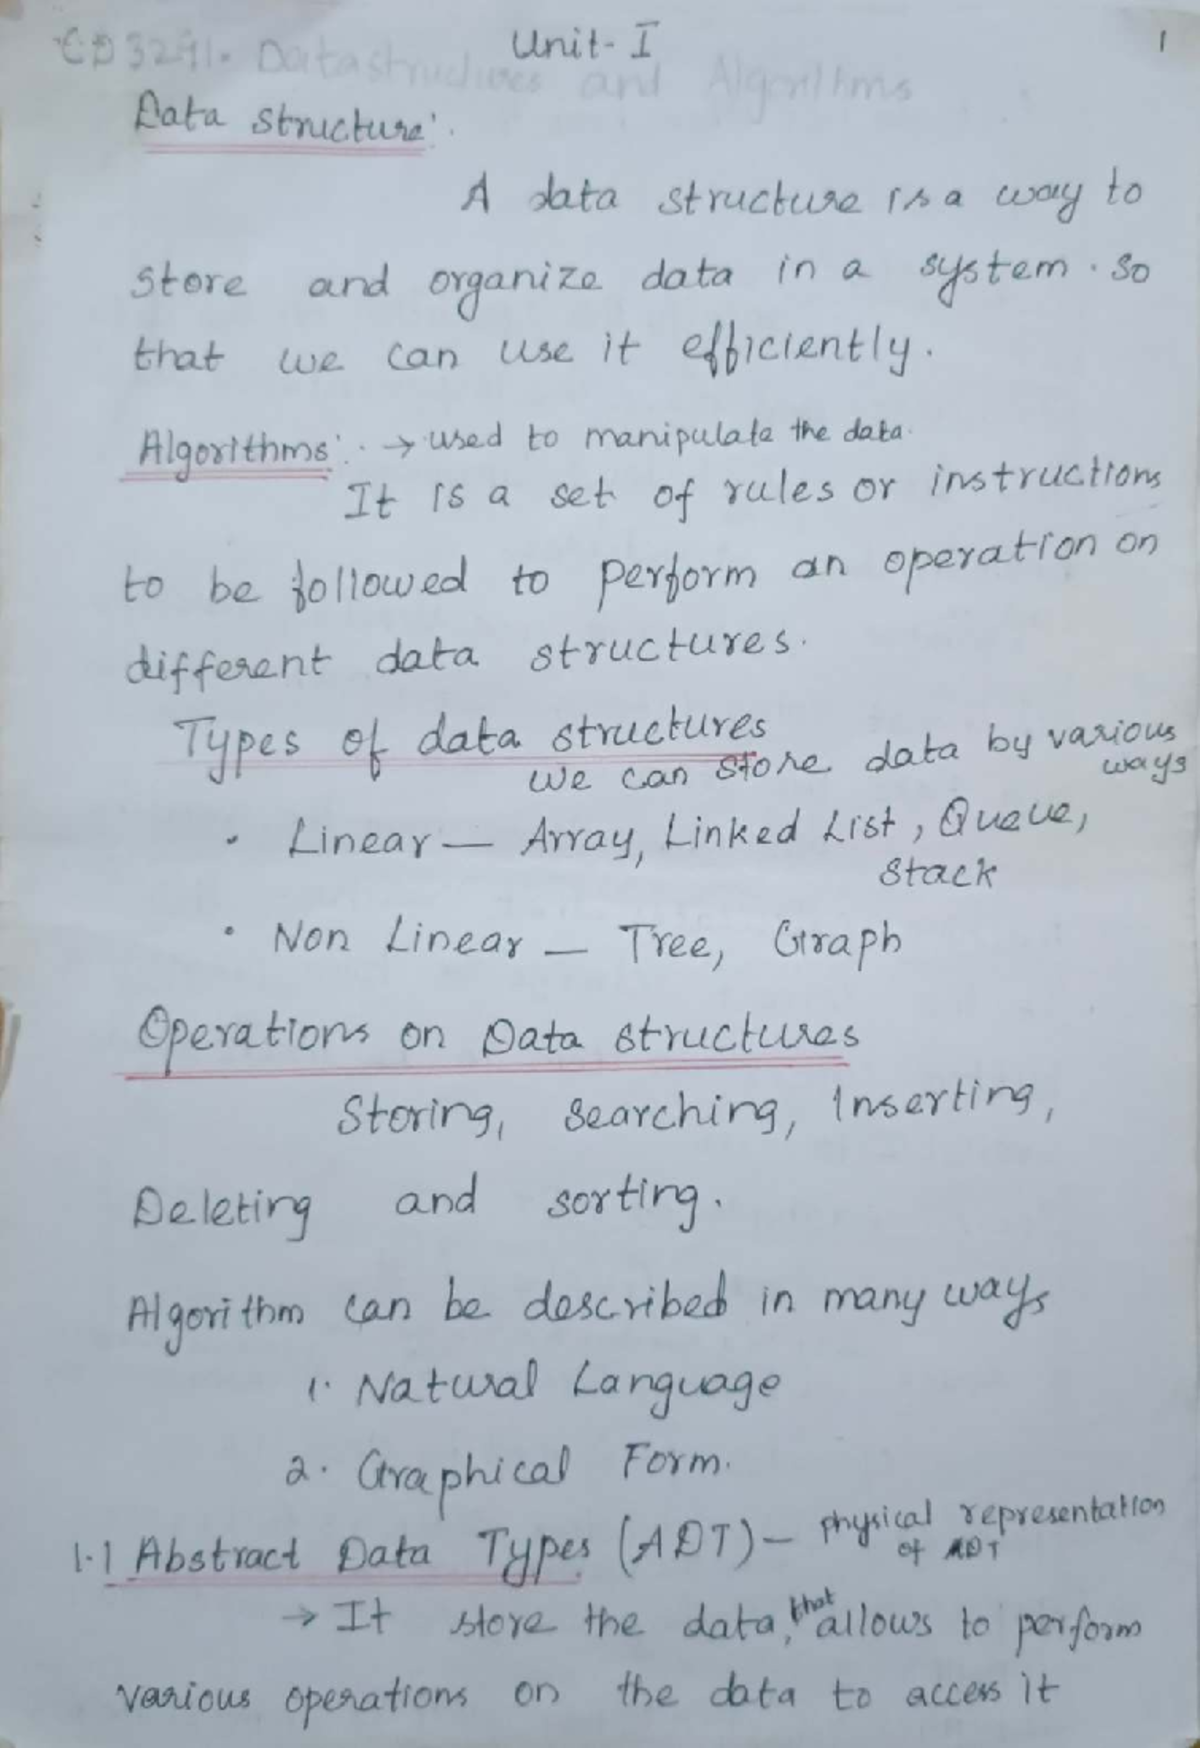 Unit-I
1
CD3291. Datastructures and Algorithms
Data structure:
A data structure is a way to
store and organize data in a system. so
that we can use it efficiently.
Algorithms: → used to manipulate the data.
It is a set of rules or instructions
to be followed to perform an operation on
different data structures.
Types of data structures
we can store data by various
ways
• Linear — Array, Linked List, Queue,
Stack
• Non Linear — Tree, Graph
Operations on Data structures
Storing, Searching, Inserting,
Deleting and sorting.
Algorithm can be described in many ways
1. Natural Language
2. Graphical Form.
1.1 Abstract Data Types (ADT) — physical representation
of ADT
→ It store the data, that allows to perform
various operations on the data to access it